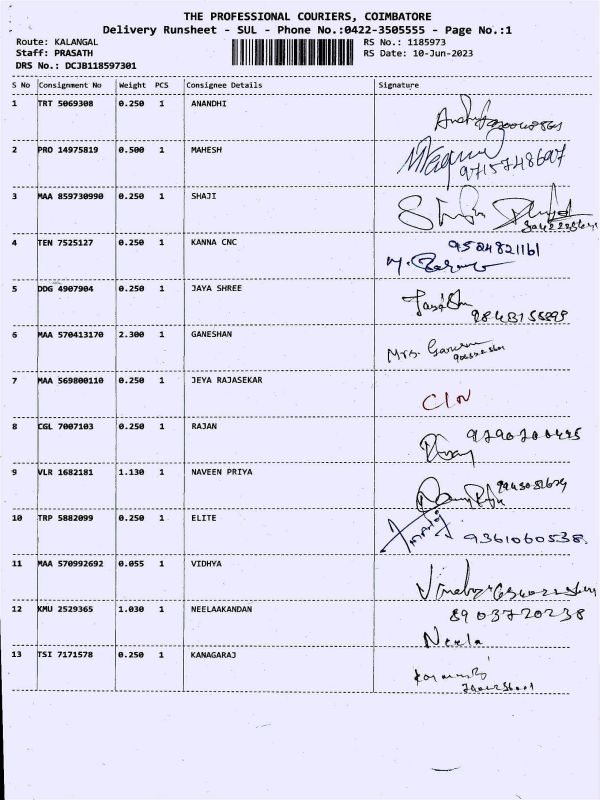 THE PROFESSIONAL COURIERS, COIMBATORE
Delivery Runsheet - SUL - Phone No.:0422-3505555 - Page No.:1
Route: KALANGAL RS No.: 1185973
Staff: PRASATH RS Date: 10-Jun-2023
DRS No.: DCJB118597301
S No Consignment No Weight PCS Consignee Details Signature
1 TRT 5069308 0.250 1 ANANDHI
2 PRO 14975819 0.500 1 MAHESH
9715748697
3 MAA 859730990 0.250 1 SHAJI
4 TEN 7525127 0.250 1 KANNA CNC 9524821161
5 DDG 4907904 0.250 1 JAYA SHREE
6 MAA 570413170 2.300 1 GANESHAN
Mrs.
7 MAA 569800110 0.250 1 JEYA RAJASEKAR
8 CGL 7007103 0.250 1 RAJAN
9 VLR 1682181 1.130 1 NAVEEN PRIYA
10 TRP 5882099 0.250 1 ELITE
9361060538.
11 MAA 570992692 0.055 1 VIDHYA
12 KMU 2529365 1.030 1 NEELAAKANDAN 8903720238
Neela
13 TSI 7171578 0.250 1 KANAGARAJ